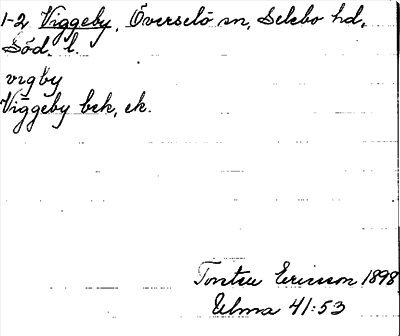 1-2 Viggeby, Överselö sn, Selebo hd,
Söd. l.
vigby
Viggeby bck, ek.
Ericsson 1898
41:53